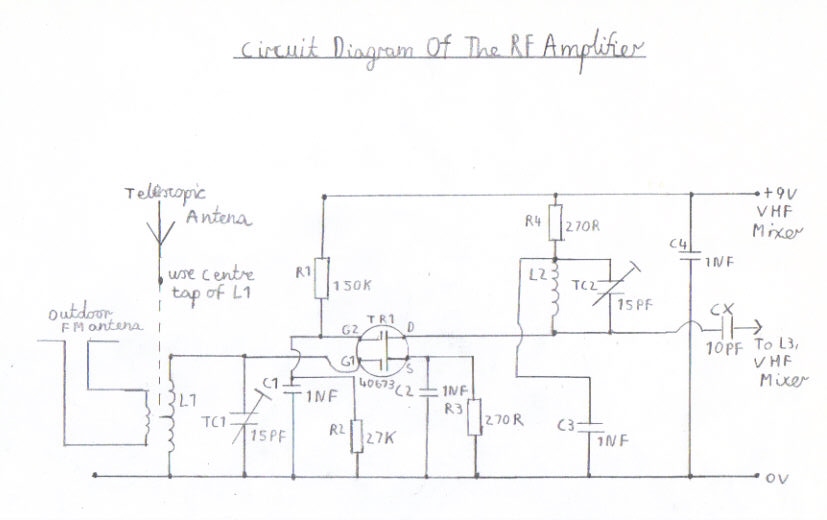 Circuit Diagram Of The RF Amplifier
Telescopic
Antena
use centre
tap of L1
Outdoor
FM antena
L1
TC1
15PF
C1
1NF
R1
150K
R2
27K
G2
TR1
D
G1
S
40673
C2
1NF
R3
270R
R4
270R
L2
TC2
15PF
C3
1NF
C4
1NF
+9V
VHF
Mixer
CX
10PF
To L3,
VHF
Mixer
0V